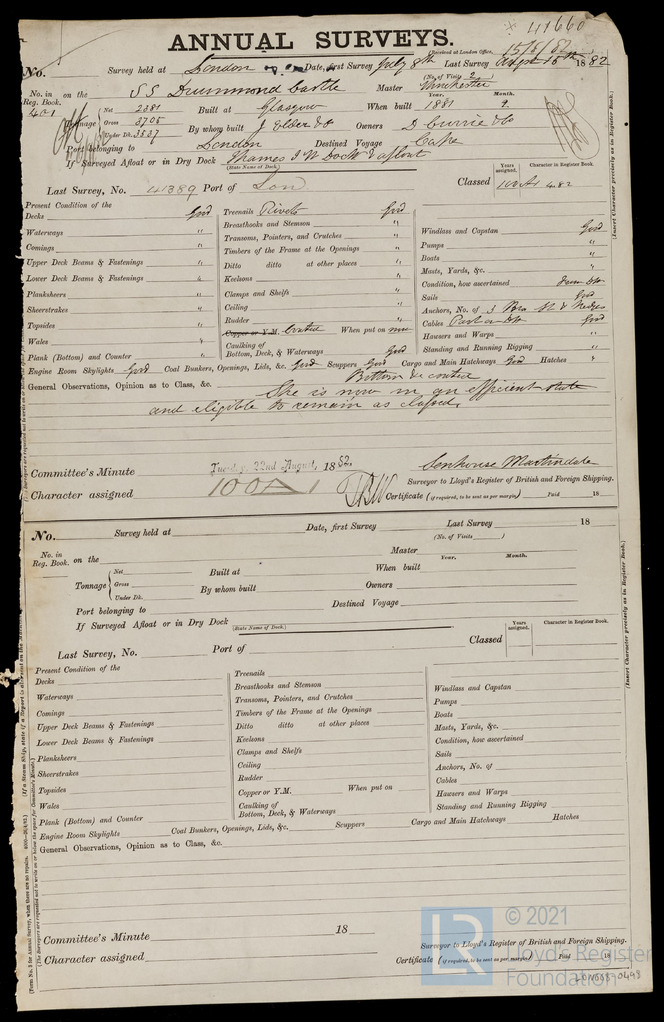 41660
ANNUAL SURVEYS.
Received at London Office, 15/8/82
No. Survey held at London Date, first Survey July 8th Last Survey Augt 15th 1882
(No. of Visits 2)
No. in Reg. Book. 401 on the SS Drummond Castle Master Winchester
Year. Month.
Tonnage Net 2381 Built at Glasgow When built 1881 2.
Gross 3705 By whom built J Elder & Co Owners D Currie & Co
Under Dk. 3537
Port belonging to London Destined Voyage Cape
If Surveyed Afloat or in Dry Dock Thames I W Dock & afloat
(State Name of Dock.)
Years assigned. Character in Register Book.
Last Survey, No. 41389 Port of Lon Classed 100A1 4.82
(Insert Character precisely as in Register Book.)
Present Condition of the
Decks Good
Waterways "
Comings "
Upper Deck Beams & Fastenings "
Lower Deck Beams & Fastenings "
Planksheers "
Sheerstrakes "
Topsides "
Wales "
Plank (Bottom) and Counter "
Treenails Rivets Good
Breasthooks and Stemson "
Transoms, Pointers, and Crutches "
Timbers of the Frame at the Openings "
Ditto ditto at other places "
Keelsons "
Clamps and Shelfs "
Ceiling "
Rudder "
Copper or Y.M. Coated When put on now
Caulking of Bottom, Deck, & Waterways Good
Windlass and Capstan Good
Pumps "
Boats "
Masts, Yards, &c. "
Condition, how ascertained from dk
Sails Good
Anchors, No. of 3 Bow St & Kedges
Cables Part on dk "
Hawsers and Warps "
Standing and Running Rigging "
Engine Room Skylights Good Coal Bunkers, Openings, Lids, &c. Good Scuppers Good Cargo and Main Hatchways Good Hatches "
General Observations, Opinion as to Class, &c. Bottom re coated
She is now in an efficient state
and eligible to remain as classed.
Committee's Minute Tuesday, 22nd August, 1882.
Senhouse Martindale
Surveyor to Lloyd's Register of British and Foreign Shipping.
Character assigned 100A1
Certificate (if required, to be sent as per margin) Paid 18
No. Survey held at Date, first Survey Last Survey 18
(No. of Visits )
No. in Reg. Book. on the Master
Year. Month.
Tonnage Net Built at When built
Gross By whom built Owners
Under Dk.
Port belonging to Destined Voyage
If Surveyed Afloat or in Dry Dock
(State Name of Dock.)
Years assigned. Character in Register Book.
Last Survey, No. Port of Classed
(Insert Character precisely as in Register Book.)
Present Condition of the
Decks
Waterways
Comings
Upper Deck Beams & Fastenings
Lower Deck Beams & Fastenings
Planksheers
Sheerstrakes
Topsides
Wales
Plank (Bottom) and Counter
Treenails
Breasthooks and Stemson
Transoms, Pointers, and Crutches
Timbers of the Frame at the Openings
Ditto ditto at other places
Keelsons
Clamps and Shelfs
Ceiling
Rudder
Copper or Y.M. When put on
Caulking of Bottom, Deck, & Waterways
Windlass and Capstan
Pumps
Boats
Masts, Yards, &c.
Condition, how ascertained
Sails
Anchors, No. of
Cables
Hawsers and Warps
Standing and Running Rigging
Engine Room Skylights Coal Bunkers, Openings, Lids, &c. Scuppers Cargo and Main Hatchways Hatches
General Observations, Opinion as to Class, &c.
Committee's Minute 18
Surveyor to Lloyd's Register of British and Foreign Shipping.
Character assigned
Certificate (if required, to be sent as per margin) Paid 18
LR © 2021
Lloyd's Register
Foundation
LON668-0493